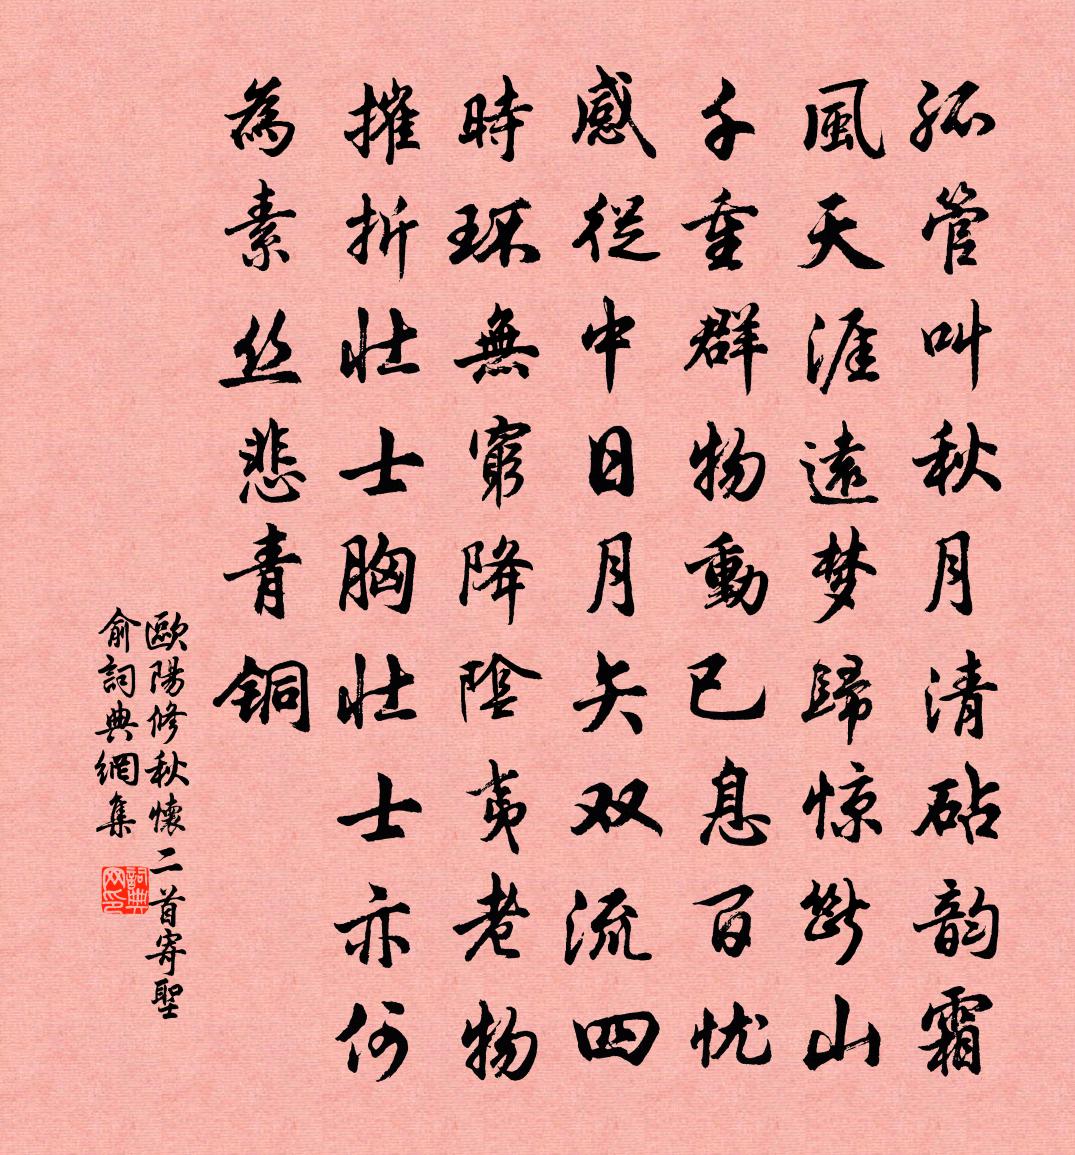 孤管叫秋月清砧韵霜
風天涯遠梦歸惊斷山
千重群物動已息百忧
感從中日月矢双流四
時环無窮降陰夷老物
摧折壮士胸壮士亦何
為素丝悲青铜
歐陽修秋懷二首寄聖
俞詞典網集
詞典网印